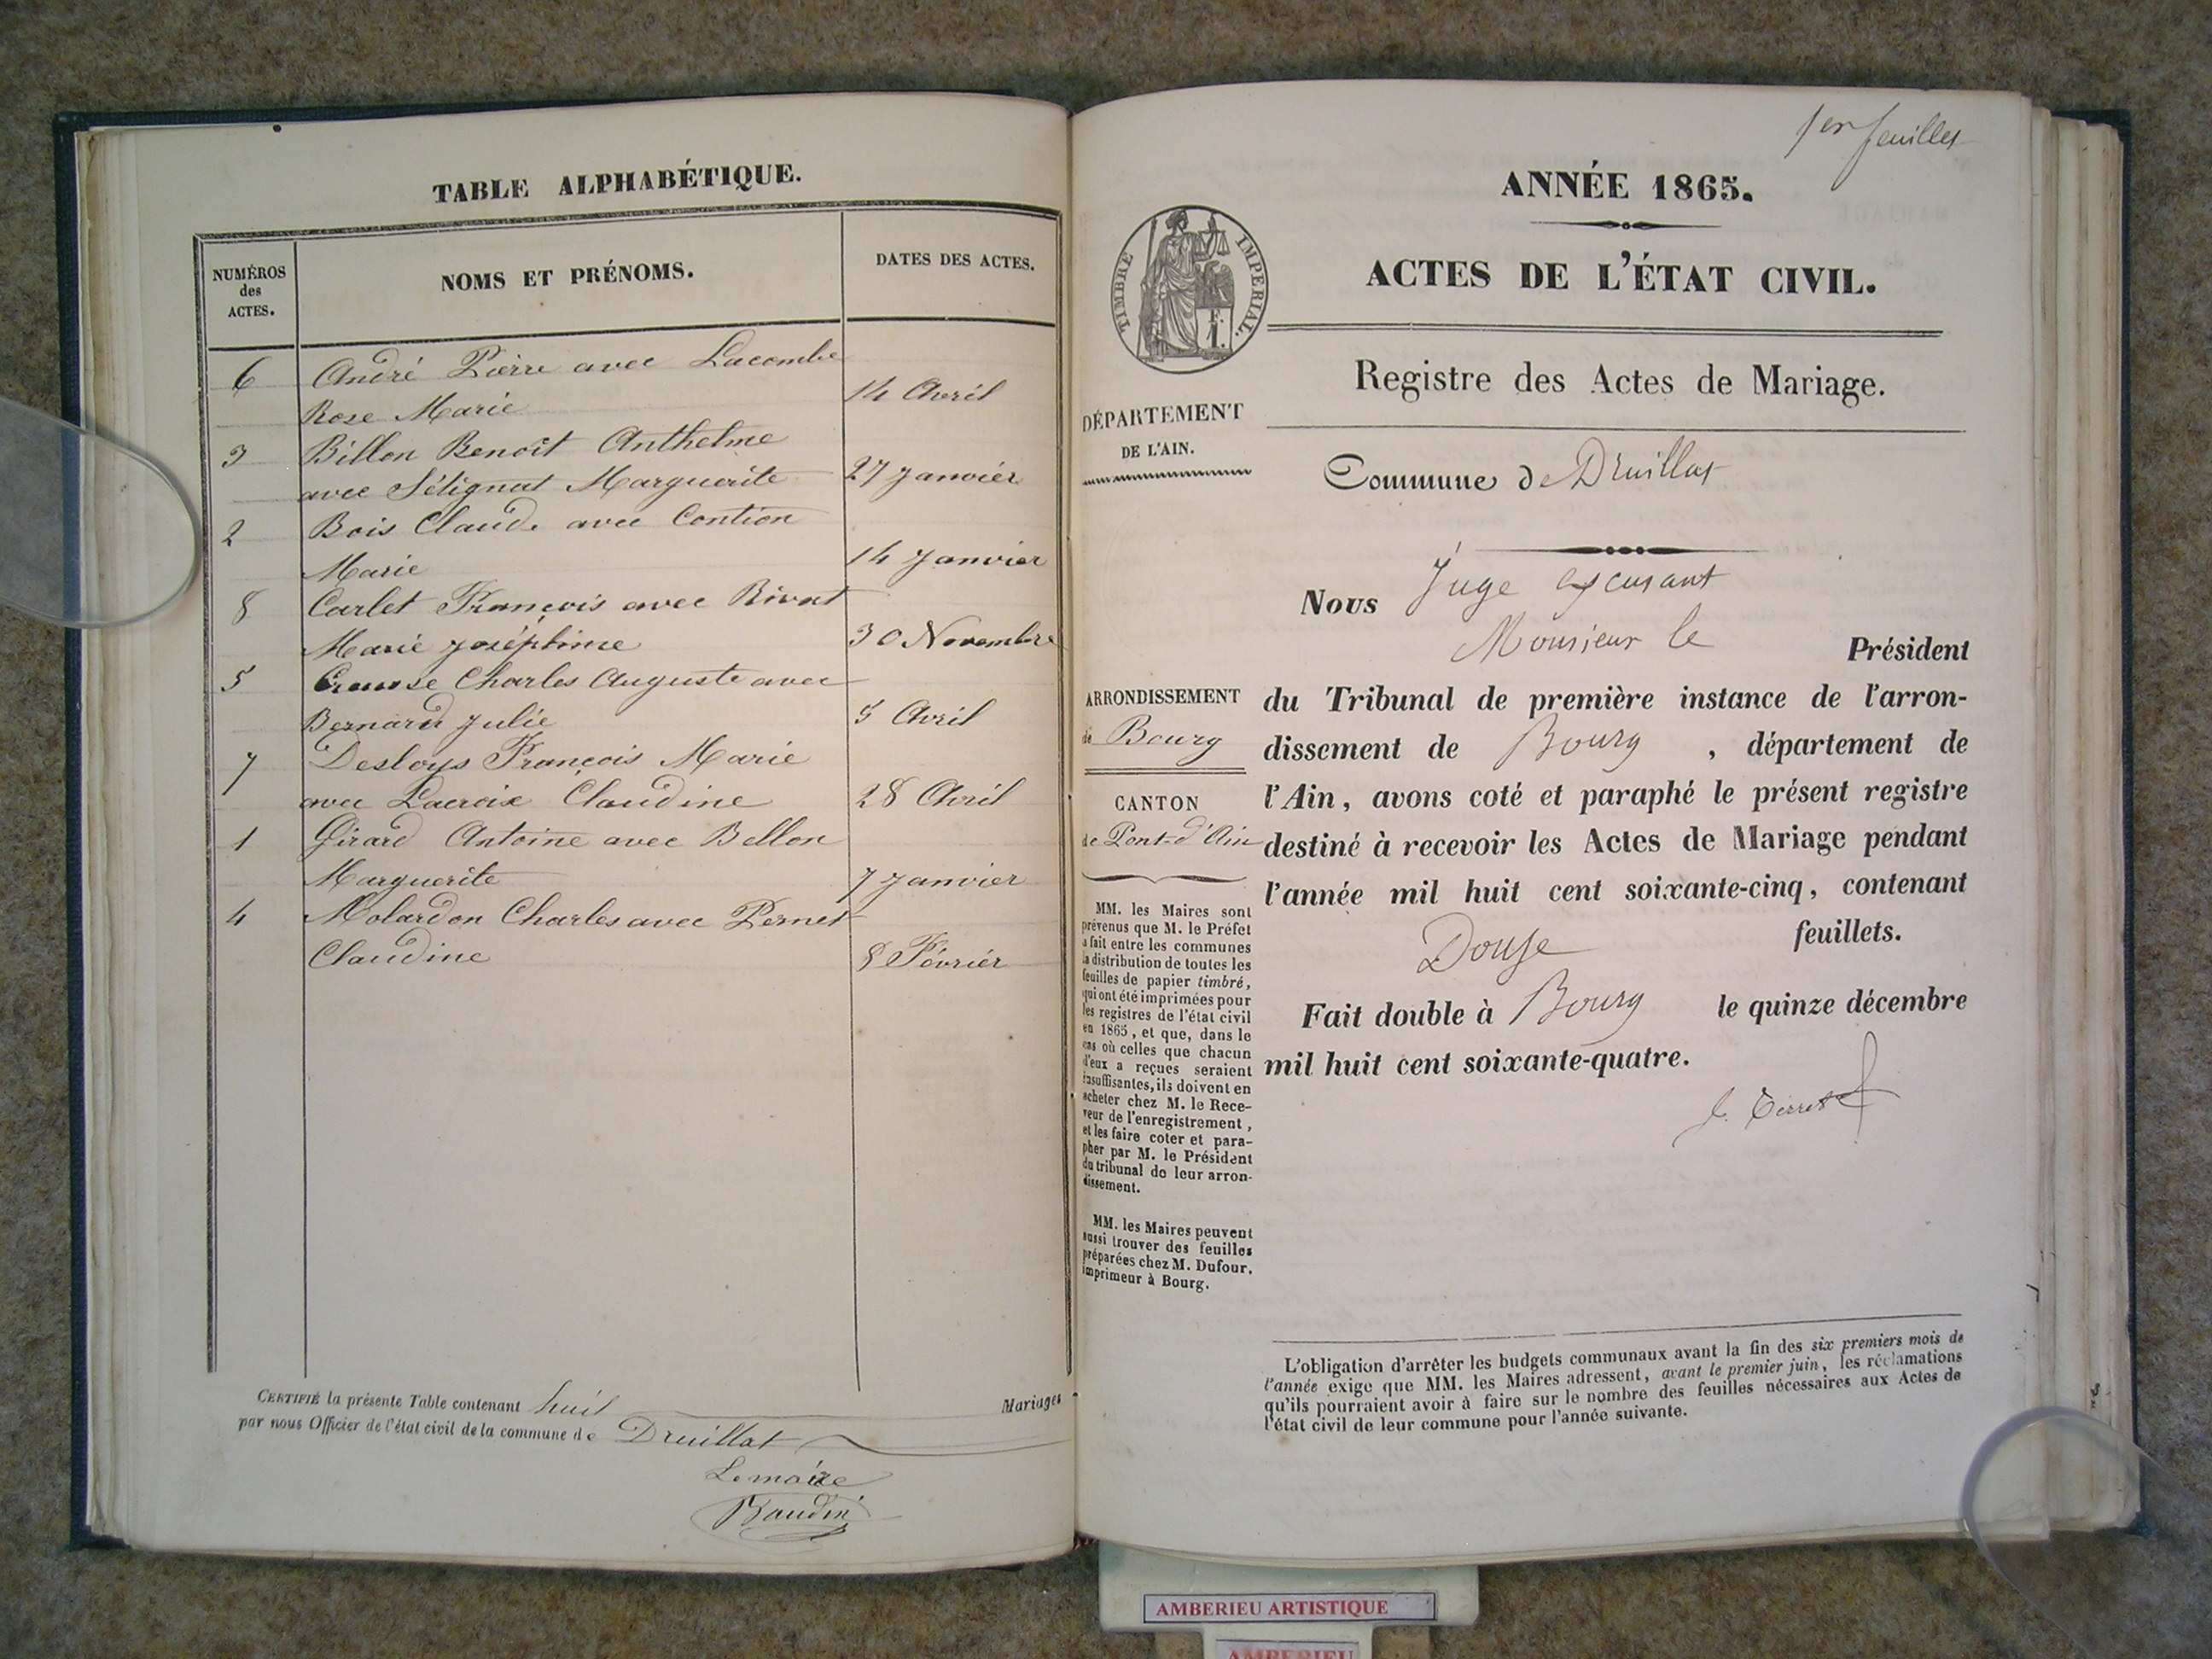 TABLE ALPHABÉTIQUE.
NUMÉROS des ACTES.
NOMS ET PRÉNOMS.
DATES DES ACTES.
6 André Pierre avec Lacombe
Rose Marie 14 Avril
3 Billon Benoît Anthelme
avec Sétignat Marguerite 27 Janvier
2 Bois Claude avec Contion
Marie 14 Janvier
8 Carlet François avec Rivat
Marie Joséphine 30 Novembre
5 Charles Auguste avec
Bernard Julie 5 Avril
7 Desloys François Marie
avec Lacroix Claudine 28 Avril
1 Girard Antoine avec Bellon
Marguerite 7 Janvier
4 Molardon Charles avec Pernet
Claudine 8 Février
CERTIFIÉ la présente Table contenant huit Mariages
par nous Officier de l'état civil de la commune de Druillat
Le maire
Baudin
1er feuillet
ANNÉE 1865.
TIMBRE IMPÉRIAL.
1 F.
ACTES DE L'ÉTAT CIVIL.
Registre des Actes de Mariage.
DÉPARTEMENT
DE L'AIN.
Commune de Druillat
ARRONDISSEMENT
de Bourg
CANTON
de Pont-d'Ain
MM. les Maires sont
prévenus que M. le Préfet
a fait entre les communes
la distribution de toutes les
feuilles de papier timbré,
qui ont été imprimées pour
les registres de l'état civil
en 1865, et que, dans le
cas où celles que chacun
d'eux a reçues seraient
insuffisantes, ils doivent en
acheter chez M. le Rece-
veur de l'enregistrement,
et les faire coter et para-
pher par M. le Président
du tribunal de leur arron-
dissement.
MM. les Maires peuvent
aussi trouver des feuilles
préparées chez M. Dufour,
imprimeur à Bourg.
Nous Juge excusant
Monsieur le Président
du Tribunal de première instance de l'arron-
dissement de Bourg, département de
l'Ain, avons coté et paraphé le présent registre
destiné à recevoir les Actes de Mariage pendant
l'année mil huit cent soixante-cinq, contenant
Douze feuillets.
Fait double à Bourg le quinze décembre
mil huit cent soixante-quatre.
L'obligation d'arrêter les budgets communaux avant la fin des six premiers mois de
l'année exige que MM. les Maires adressent, avant le premier juin, les réclamations
qu'ils pourraient avoir à faire sur le nombre des feuilles nécessaires aux Actes de
l'état civil de leur commune pour l'année suivante.
AMBERIEU ARTISTIQUE
AMBERIEU